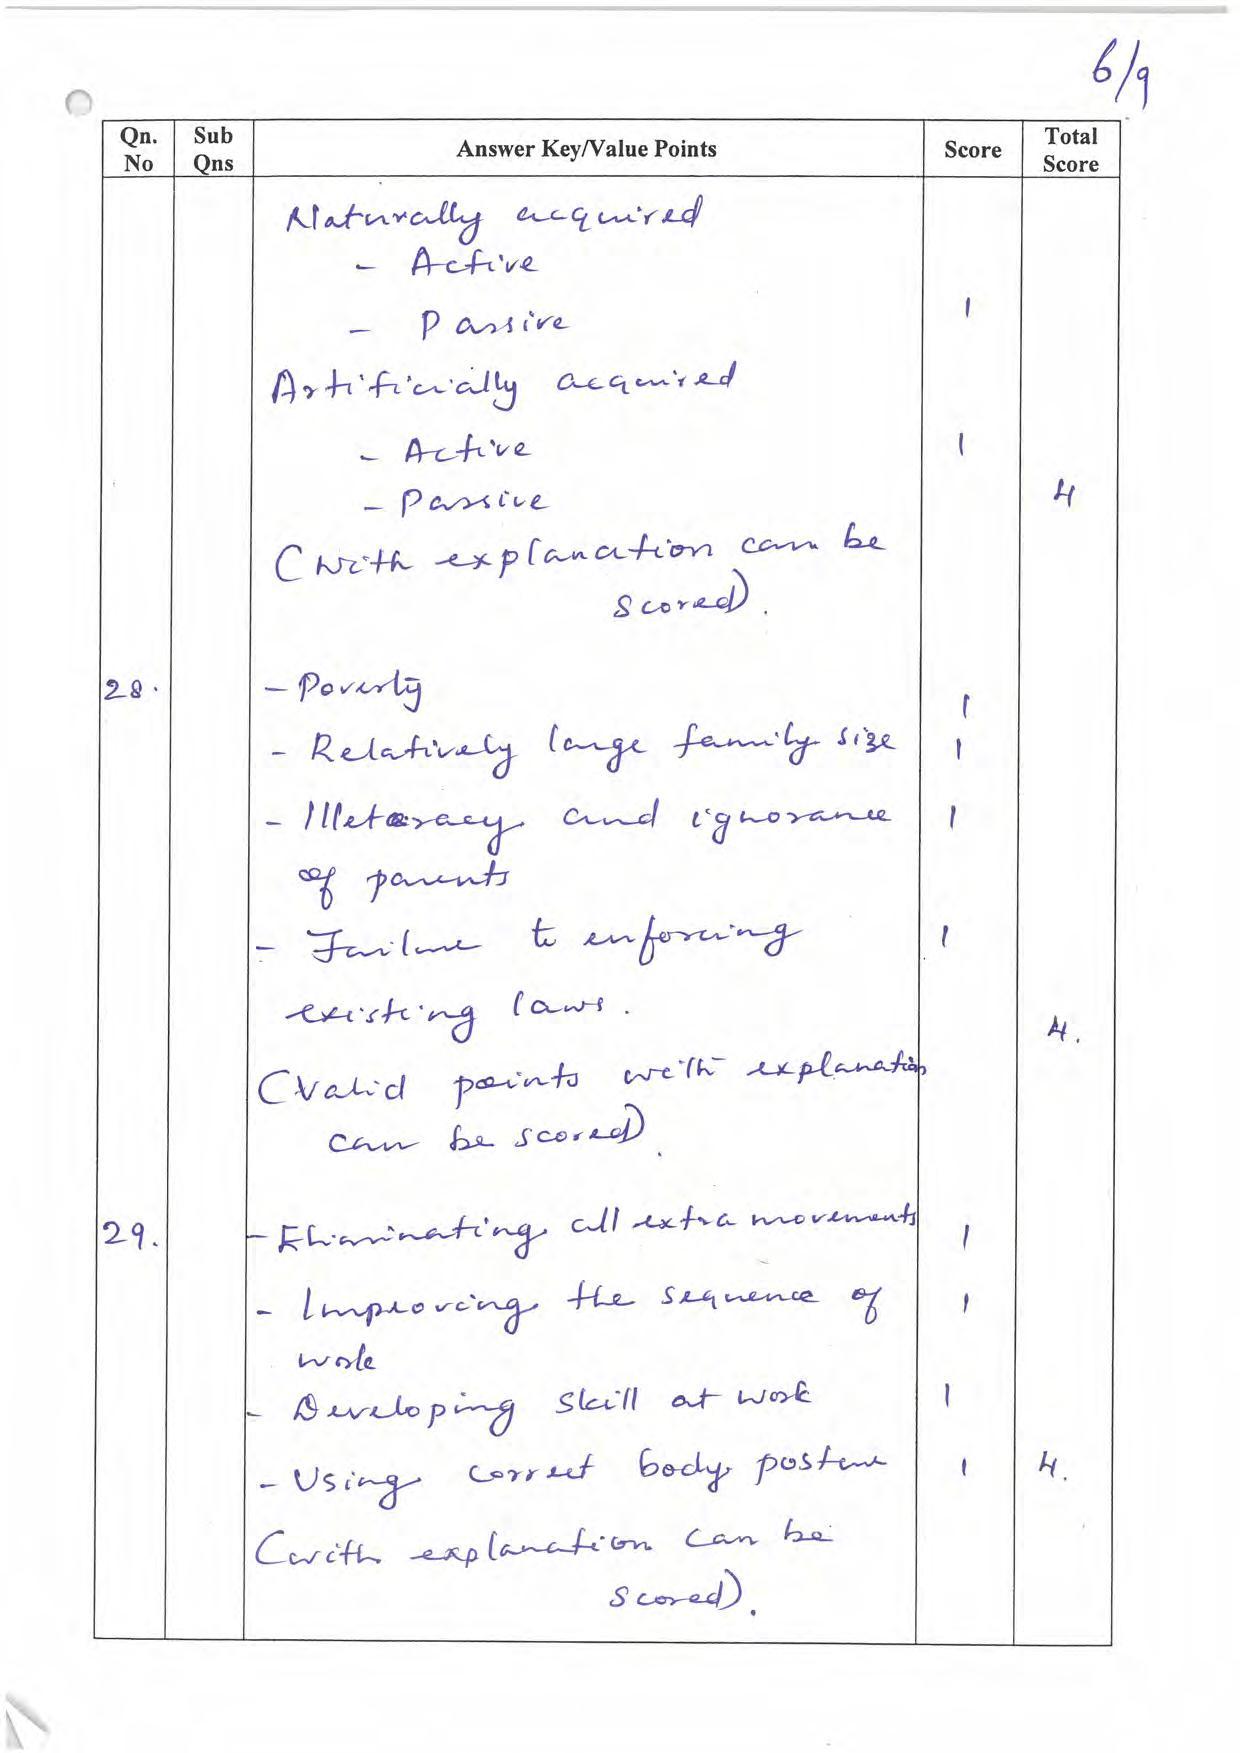 6/9
Qn. No Sub Qns Answer Key/Value Points Score Total Score
Naturally acquired
- Active
- Passive 1
Artificially acquired
- Active 1
- Passive 4
(With explanation can be
scored).
28. - Poverty 1
- Relatively large family size 1
- Illeteracy and ignorance 1
of parents
- Failure to enforcing 1
existing laws.
4.
(Valid points with explanation
can be scored).
29. - Eliminating all extra movements 1
- Improving the sequence of 1
work
- Developing skill at work 1
- Using correct body posture 1 4.
(with explanation can be
scored).